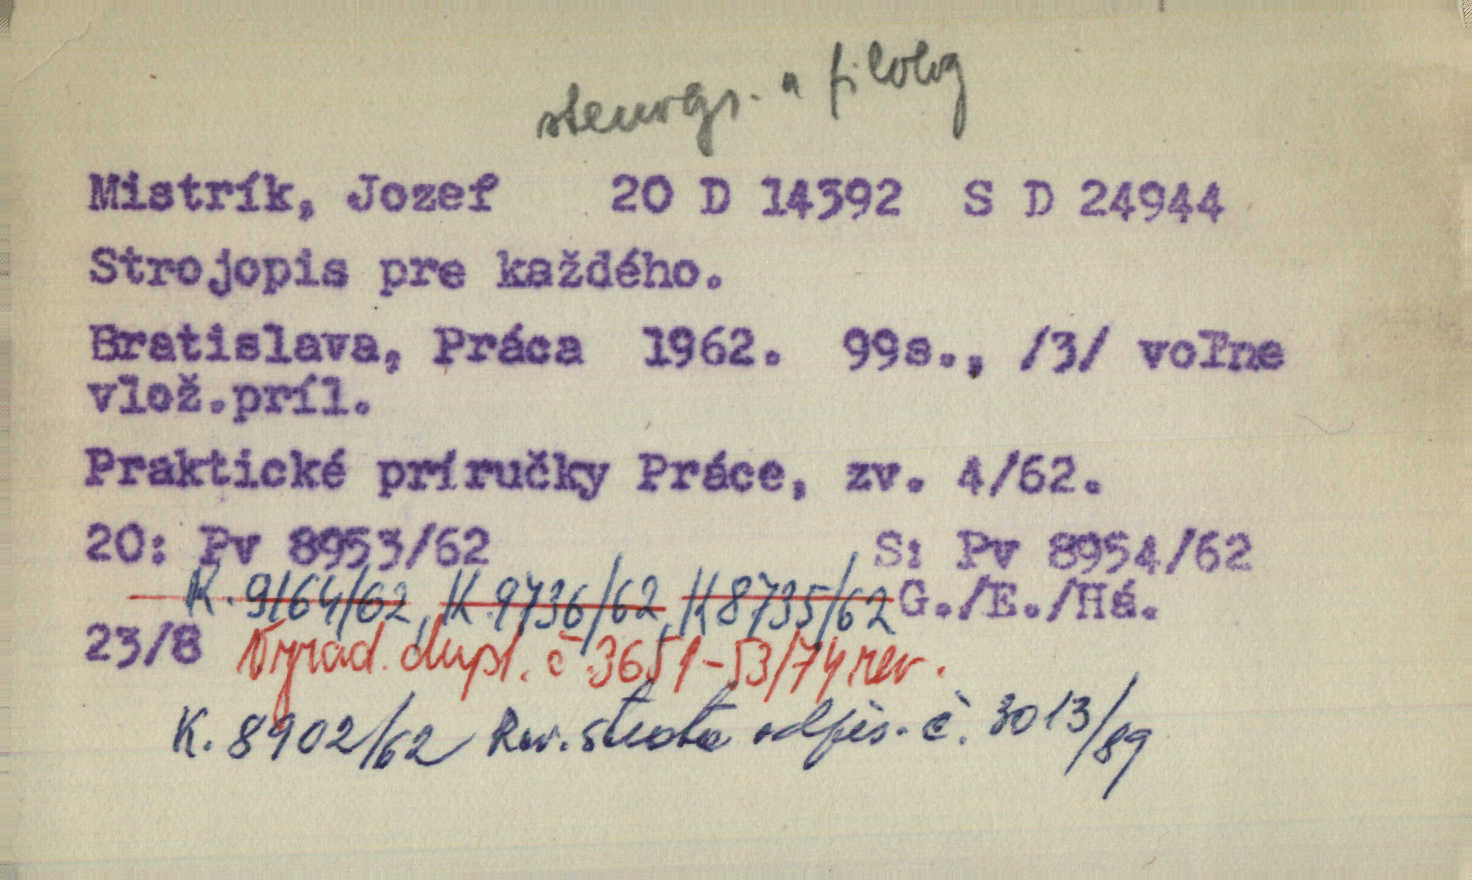 stenogr. a filolog
Mistrík, Jozef 20 D 14392 S D 24944
Strojopis pre každého.
Bratislava, Práca 1962. 99s., /3/ voľne
vlož.príl.
Praktické príručky Práce, zv. 4/62.
20: Pv 8953/62 S: Pv 8954/62
K. 9164/62, K. 9736/62, K 8735/62 G./E./Há.
23/8 Vyrad. dupl. č. 3651-53/74 rev.
K. 8902/62 Rev. strata odpis. č. 3013/89